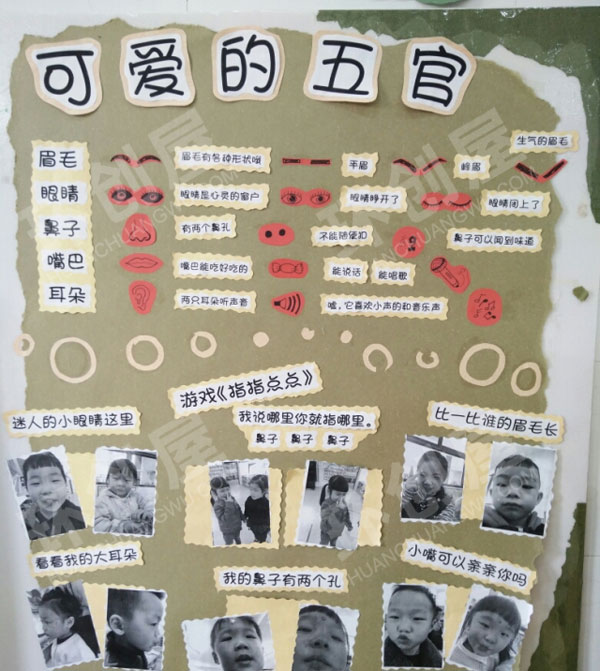 可爱的五官
生气的眉毛
眉毛 眉毛有各种形状哦 平眉 峰眉
眼睛 眼睛是心灵的窗户 眼睛睁开了 眼睛闭上了
鼻子 有两个鼻孔 不能随便扣 鼻子可以闻到味道
嘴巴 嘴巴能吃好吃的 能说话 能唱歌
耳朵 两只耳朵听声音 嘘,它喜欢小声的和音乐声
游戏《指指点点》
迷人的小眼睛这里
我说哪里你就指哪里。
鼻子 鼻子 鼻子
比一比谁的眉毛长
看看我的大耳朵
我的鼻子有两个孔
小嘴可以亲亲你吗